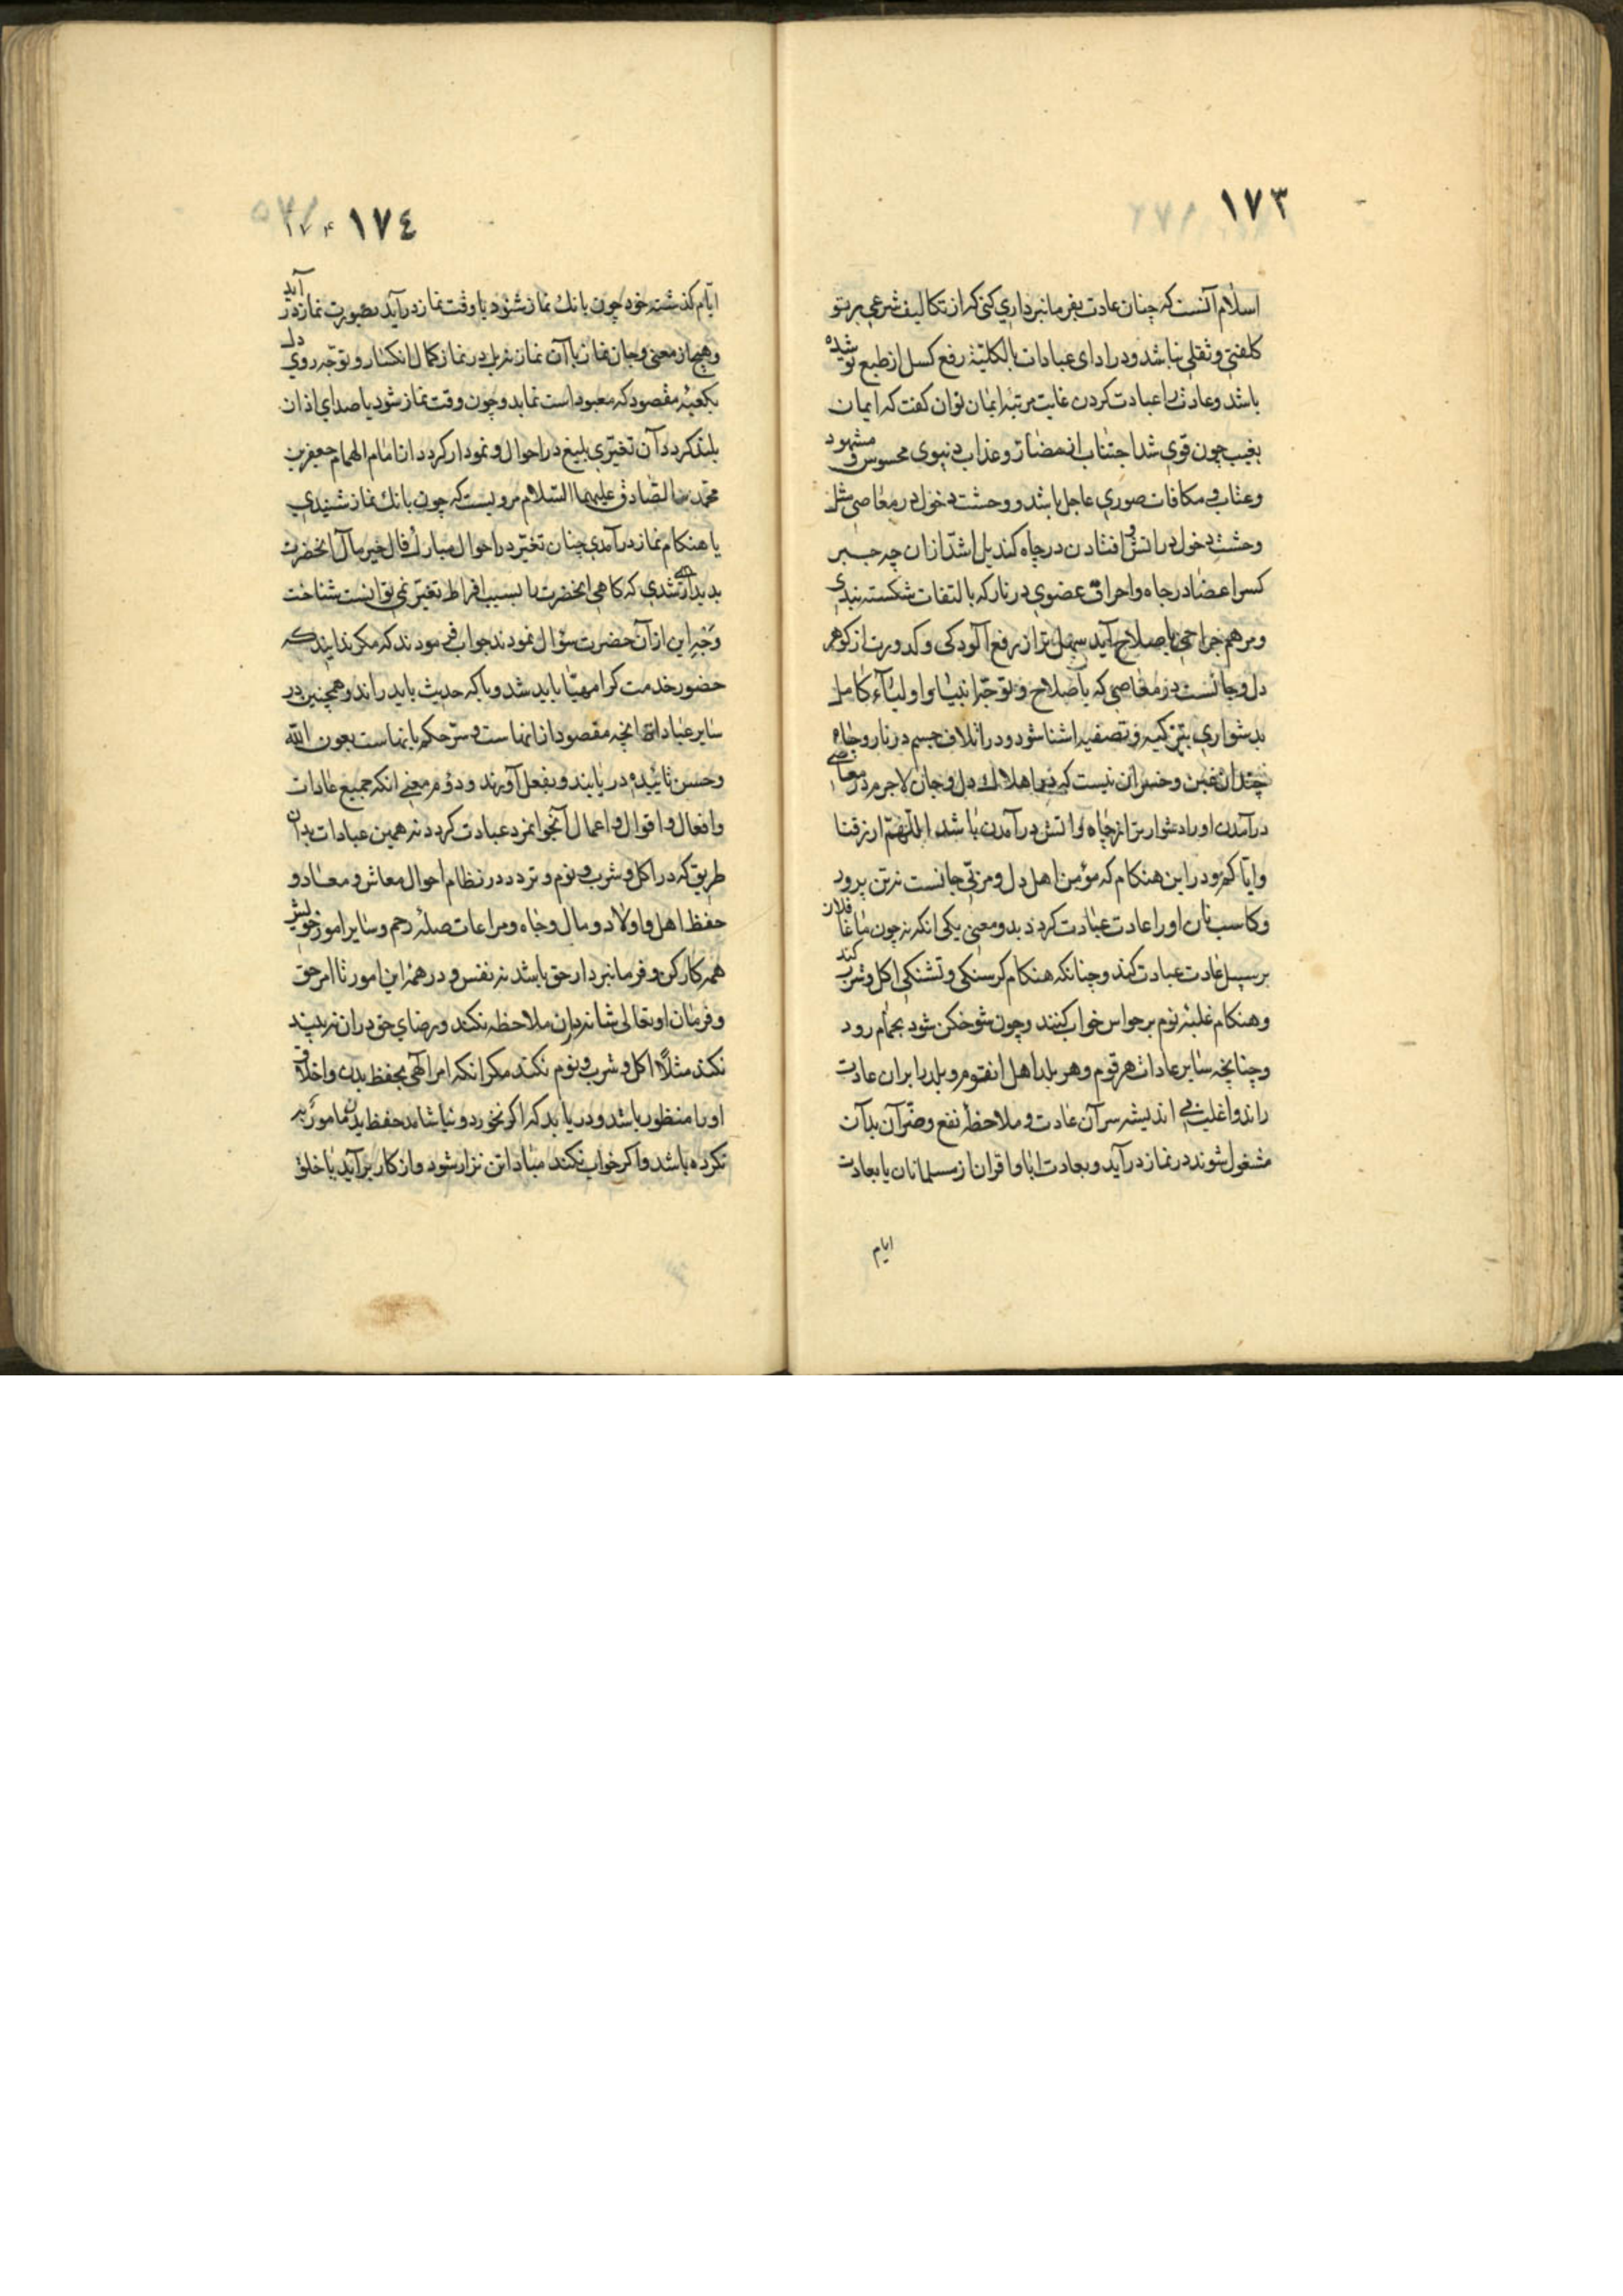 ١٧٣
اسلام آنست که چنان عادت بفرمانبرداري کنی که از تکالیف شرعی بر تو
کلفتی و ثقلی نباشد و در ادای عبادات بالکلیّة رفع کسل از طبع تو شده
باشد و عادت را عبادت کردن غایت مرتبهٔ ایمان توان کفت که ایمان
بغیب چون قوي شد اجتناب از مضارّ و عذاب دنیوی محسوس و مشهود
و عتاب و مکافات صوري عاجل باشد و وحشت دخول در معاصی مثل
وحشت دخول در اتش و افتادن در چاه کند بل اشدّ ازان چه جبر
کسر اعضا در چاه و احراق عضوي در نار که بالتفات شکسته بندي
و مرهم جراحی باصلاح آید سهل تر از رفع آلودکی و کدورت از کوهر
دل و جانست در معاصی که باصلاح و توجّه انبیا و اولیآء کامل
بدشواري بتزکیه و تصفیه اشنا شود و در اتلاف جسم در نار و چاه
چندان غبن و خسران نیست که در اهلاك دل و جان لاجرم در معاصی
درآمدن او را دشوارتر از چاه و اتش درآمدن باشد اللّهمّ ارزقنا
و ایّاکم و در این هنکام که مؤمن اهل دل و مربّي جانست نه تن پرور
و کاسب نان او را عادت عبادت کردد بدو معنی یکی انکه نه چون ما غافلان
بر سبیل عادت عبادت کند و چنانکه هنکام کرسنکی و تشنکی اکل و شرب کند
و هنکام غلبهٔ نوم بر حواس خواب کنند و چون شوخکن شود بحمّام رود
و چنانچه سایر عادات هر قوم و هر بلد اهل انقوم و بلد را بران عادت
راند و اغلب بی اندیشه سر آن عادت و ملاحظهٔ نفع و ضرّ آن بدآن
مشغول شوند در نماز درآید و بعادت ابا و اقران از مسلمانان یا بعادت
ایام
١٧٤
ایّام کذشته خود چون بانك نماز شنود یا وقت نماز درآید بصورت نماز درآید
و هیچ از معنی و جان نماز با آن نماز نه بل در نماز کمال انکسار و توجّه روي دل
بکعبهٔ مقصود که معبود است نماید و چون وقت نماز شود یا صداي اذان
بلند کردد آن تغیّري بلیغ در احوال و نمودار کردد از امام الهمام جعفر بن
محمّد الصّادق علیهما السّلام مرویست که چون بانك نماز شنیدي
یا هنکام نماز درآمدي چنان تغیّر در احوال مبارك فال خیر مآل انحضرت
پدیدار شدي که کاهی انحضرت را بسبب افراط تغیّر نمی توانست شناخت
وجه این از آن حضرت سؤال نمودند جواب فرمودند که مکر ندانید که
حضور خدمت کرا مهیّا باید شد و با که حدیث باید راند و همچنین در
سایر عبادات انچه مقصود از انهاست و سرّ حکم بانهاست بعون الله
و حسن تائیده دریابند و بفعل آورند و دوّم معنی انکه جمیع عادات
و افعال و اقوال و اعمال آنجوانمرد عبادت کردد نه همین عبادات بدان
طریق که در اکل و شرب و نوم و تردد در نظام احوال معاش و معاد و
حفظ اهل و اولاد و مال و جاه و مراعات صلهٔ رحم و سایر امور خویش
همه کارکن و فرمانبردار حق باشد نه نفس و در همهٔ این امور تا امر حق
و فرمان او تعالی شانه دران ملاحظه نکند و رضاي حق دران نه بیند
نکند مثلاً اکل و شرب و نوم نکند مکر انکه امر الهی بحفظ بدن و اخلاق
او را منظور باشد و دریابد که اکر نخورد و نیاشامد حفظ بدن مامور به
نکرده باشد و اکر خواب نکند مبادا تن نزار شود و از کار برآید یا خلق